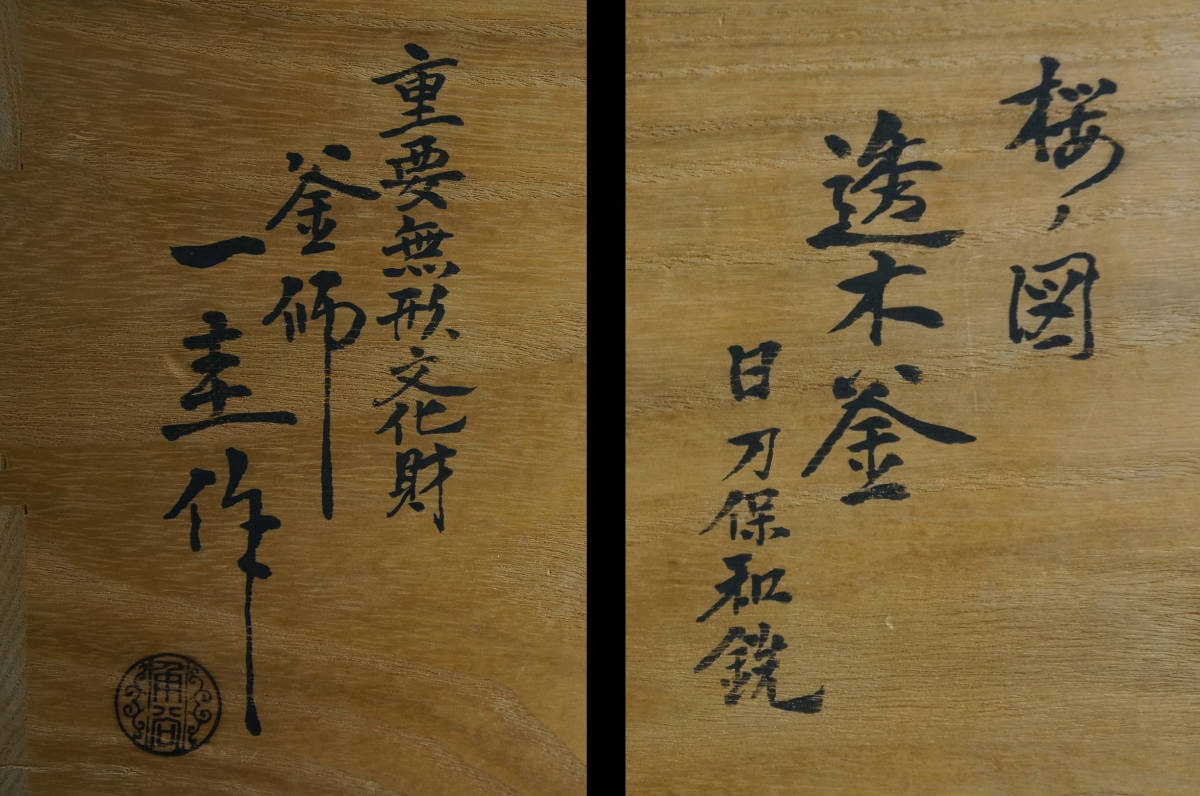 桜ノ図
透木釜
日刀保和銑
重要無形文化財
釜師
一圭作
角谷